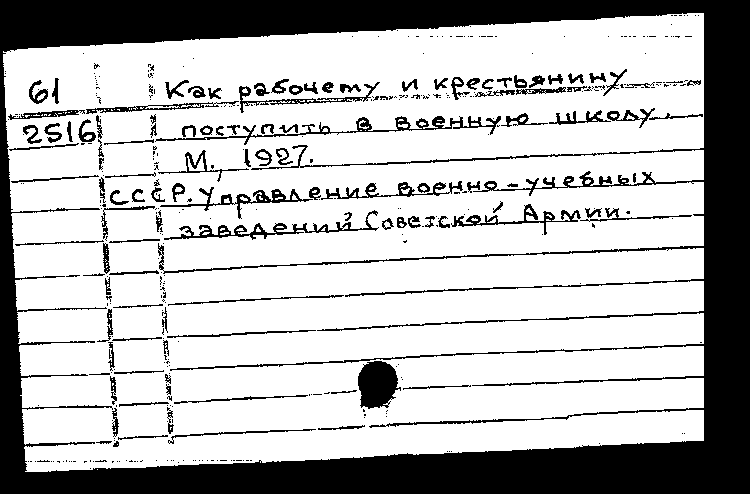 61 Как рабочему и крестьянину
2516 поступить в военную школу.
М., 1927.
СССР. Управление военно-учебных
заведений Советской Армии.